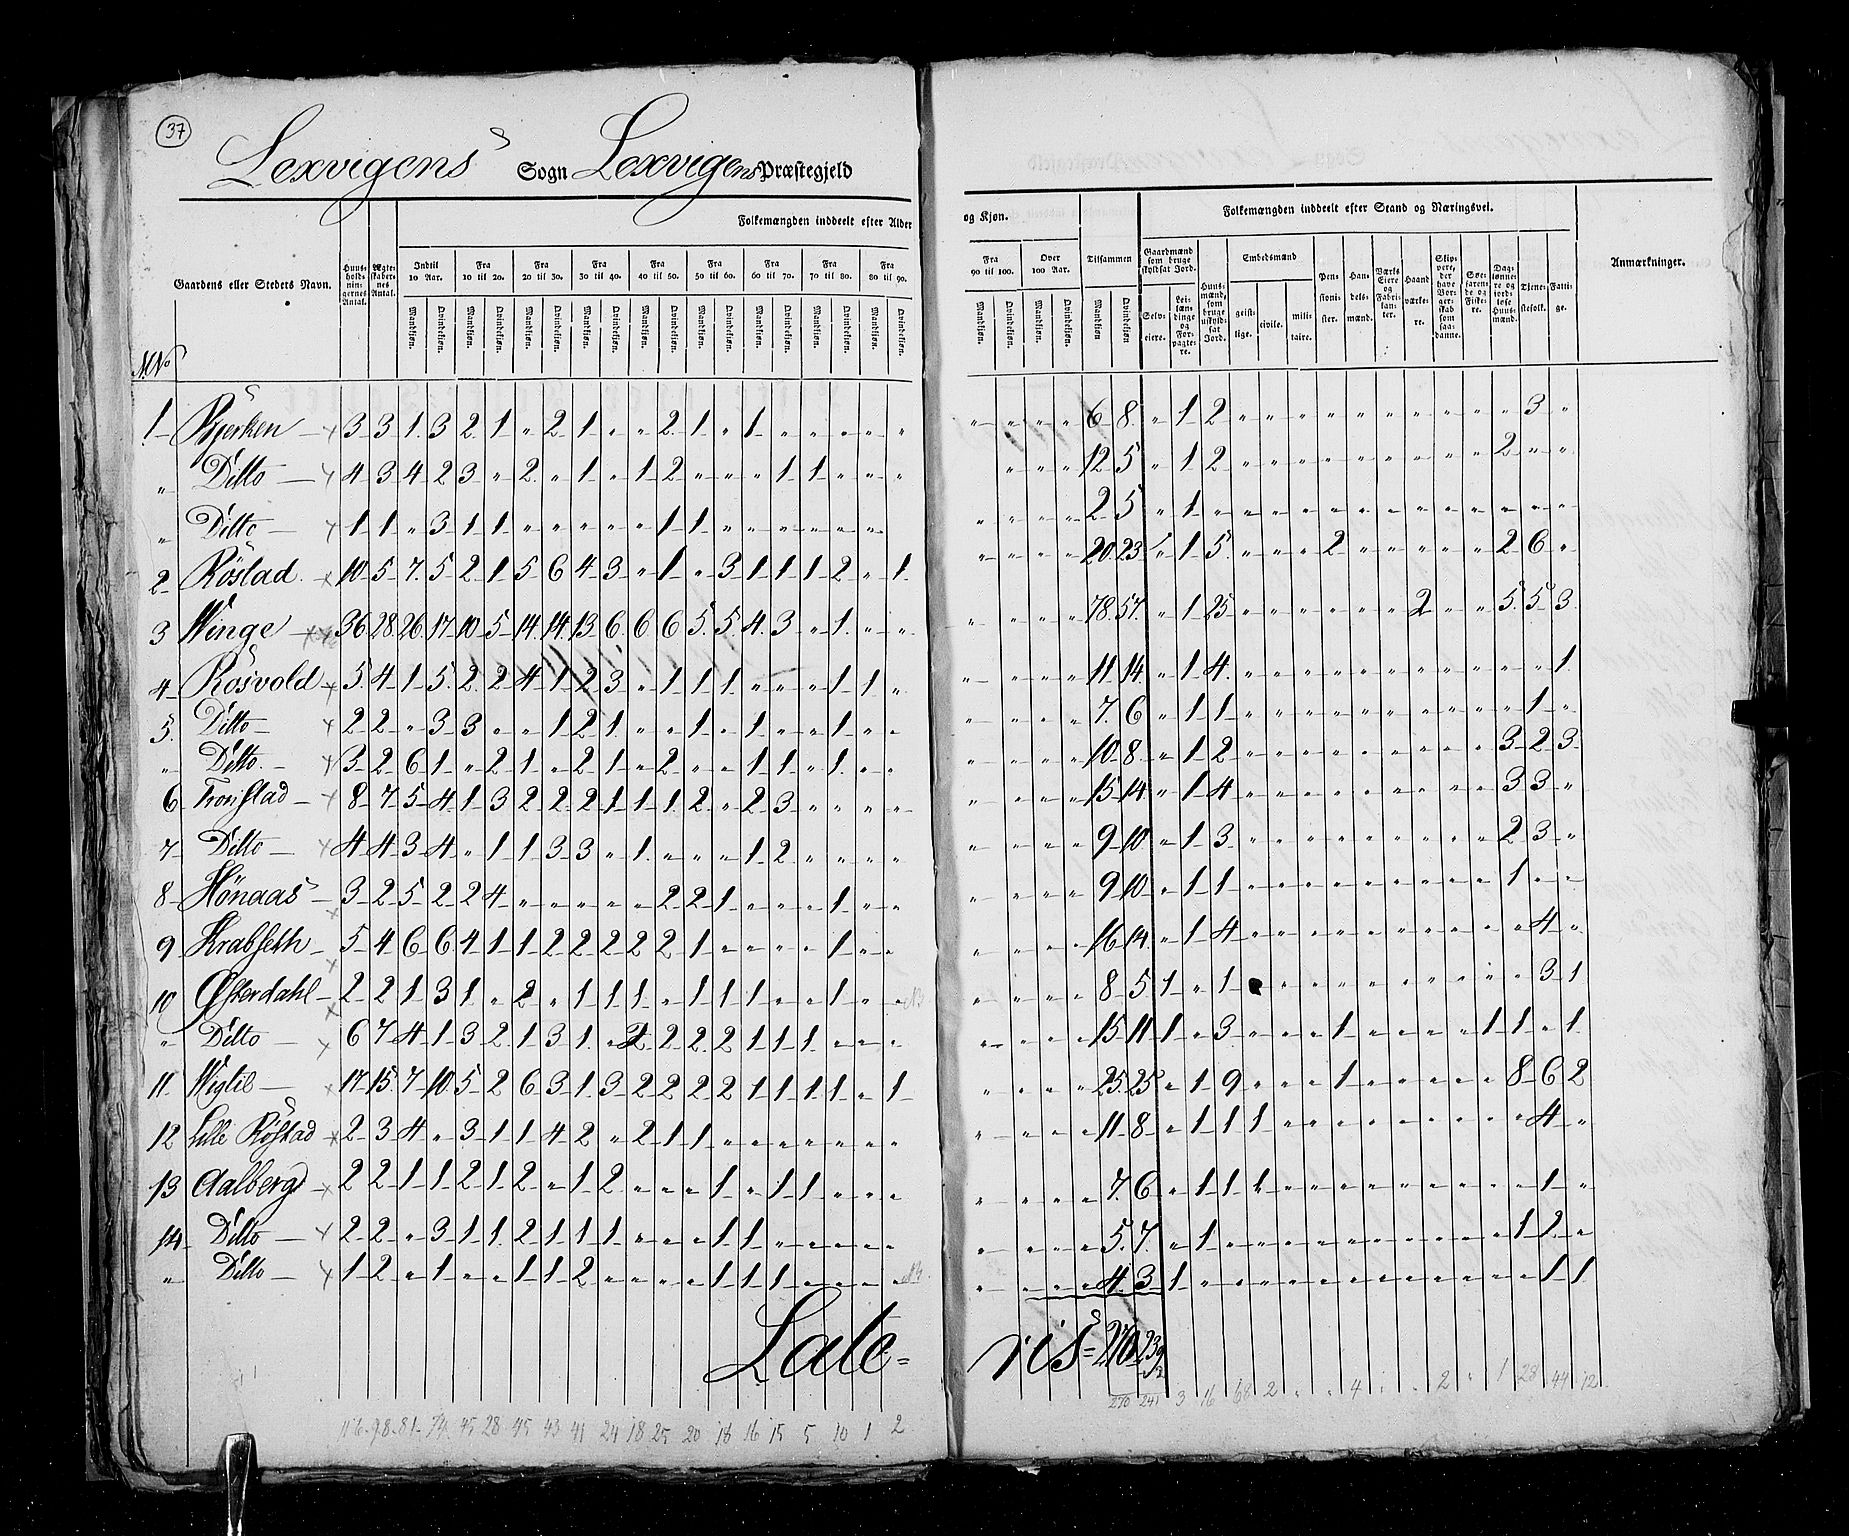 37
Lexvigens Sogn Lexvigens Præstegjeld
Folkemængden inddeelt efter Alder og Kjøn.
Folkemængden inddeelt efter Stand og Næringsvei.
Gaardens eller Stedets Navn.
Huus-holdningernes Antal.
Ægteskabernes Antal.
Indtil 10 Aar. Fra 10 til 20. Fra 20 til 30. Fra 30 til 40. Fra 40 til 50. Fra 50 til 60. Fra 60 til 70. Fra 70 til 80. Fra 80 til 90. Fra 90 til 100. Over 100 Aar. Tilsammen
Mandkjøn. Qvindekjøn.
Gaardmænd som bruge skyldsat Jord. Selveiere. Leilændinge og Forpagtere. Huusmænd, som bruge uskyldsat Jord. Embedsmænd geistlige. civile. militaire. Pensionister. Handelsmænd. Haandværkere. Daglønnere og jordløse Huusmænd. Tjenestefolk. Fattige.
Anmærkninger.
M. No
1 Bjerken 3 3 1 3 2 1 " 2 1 " " 2 1 " 1 " " " " " " " " " 6 8 " 1 2 " " " " " " " " " " " 3 "
" Ditto 4 3 4 2 3 " 2 " 1 " 1 2 " " " 1 1 " " " " " " 12 5 " 1 2 " " " " " " " " " 2 " "
" Ditto 1 1 " 3 1 1 " " " " " 1 1 " " " " " " " " " " 2 5 " 1 " " " " " " " " " " " " "
2 Röstad 10 5 7 5 2 1 5 6 4 3 " 1 " 3 1 1 1 2 " 1 " " " " 20 23 " 1 5 " " " 2 " " " " " 2 6 "
3 Winge 36 28 26 17 10 5 14 14 13 6 6 6 5 5 4 3 " 1 " " " " " " 78 57 " 1 25 " " " " " " 2 " " 5 5 3
4 Rösvold 5 4 1 5 2 2 4 1 2 3 " 1 1 1 " " " 1 1 " " " " " 11 14 " 1 4 " " " " " " " " " " " 1
5 Ditto 2 2 " 3 3 " " 1 2 1 " " 1 " 1 " " 1 " " " " " " 7 6 " 1 1 " " " " " " " " " " 1 "
" Ditto 3 2 6 1 " 2 1 " 2 1 " 2 " " 1 1 " 1 " " " " " " 10 8 " 1 2 " " " " " " " " " 3 2 3
6 Tronstad 8 7 5 4 1 3 2 2 2 1 1 1 2 " 2 3 " " " " " " " " 15 14 " 1 4 " " " " " " " " " 3 3 "
7 Ditto 4 4 3 4 " 1 1 3 3 " 1 " " " 1 2 " " " " " " " " 9 10 " 1 3 " " " " " " " " " 2 3 "
8 Hönaas 3 2 5 2 2 4 " " " " " 2 2 1 " " " 1 " " " " " " 9 10 " 1 1 " " " " " " " " " 1 " "
9 Krabseth 5 4 6 6 4 1 1 2 2 2 2 2 1 " " " " 1 " " " " " " 16 14 " 1 4 " " " " " " " " " " 4 "
10 Østerdahl 2 2 1 3 1 " 2 " 1 1 1 " 1 1 1 " " 1 " " " " " " 8 5 1 " 1 " " " " " " " " " 3 1
" Ditto 6 7 4 1 3 2 1 3 1 " 2 2 2 2 1 1 1 " " " " " " " 15 11 1 " 3 " " " 1 " " " " 1 1 " 1
11 Wigtil 17 15 7 10 5 2 6 3 1 3 2 2 2 2 1 1 1 1 " 1 " " " " 25 25 " 1 9 " " " 1 " " " " " 8 6 2
12 Lille Röstad 2 3 4 " 3 1 1 4 2 " 2 1 1 " " " " " " " " " " " 11 8 " 1 1 1 " " " " " " " " " 4 "
13 Aalberg 2 2 1 1 2 1 2 " 1 2 " " " 1 " 1 1 " " " " " " " 7 6 " 1 1 1 " " " " " " " " " 1 "
14 Ditto 2 2 " 3 1 1 2 1 1 1 " " " 1 1 " " " " " " " " 5 7 " 1 " " " " " " " " " " 1 2 "
" Ditto 1 2 " 1 " " 1 1 2 " " " " 1 1 1 " " " " " " " 4 3 1 " " " " " " " " " " " " 1 1
Late= ris= 270 239
116 98 81 74 45 28 45 43 41 24 18 25 20 18 16 15 5 10 1 2
270 241 3 16 68 2 " " 4 " " 2 " 1 28 44 12